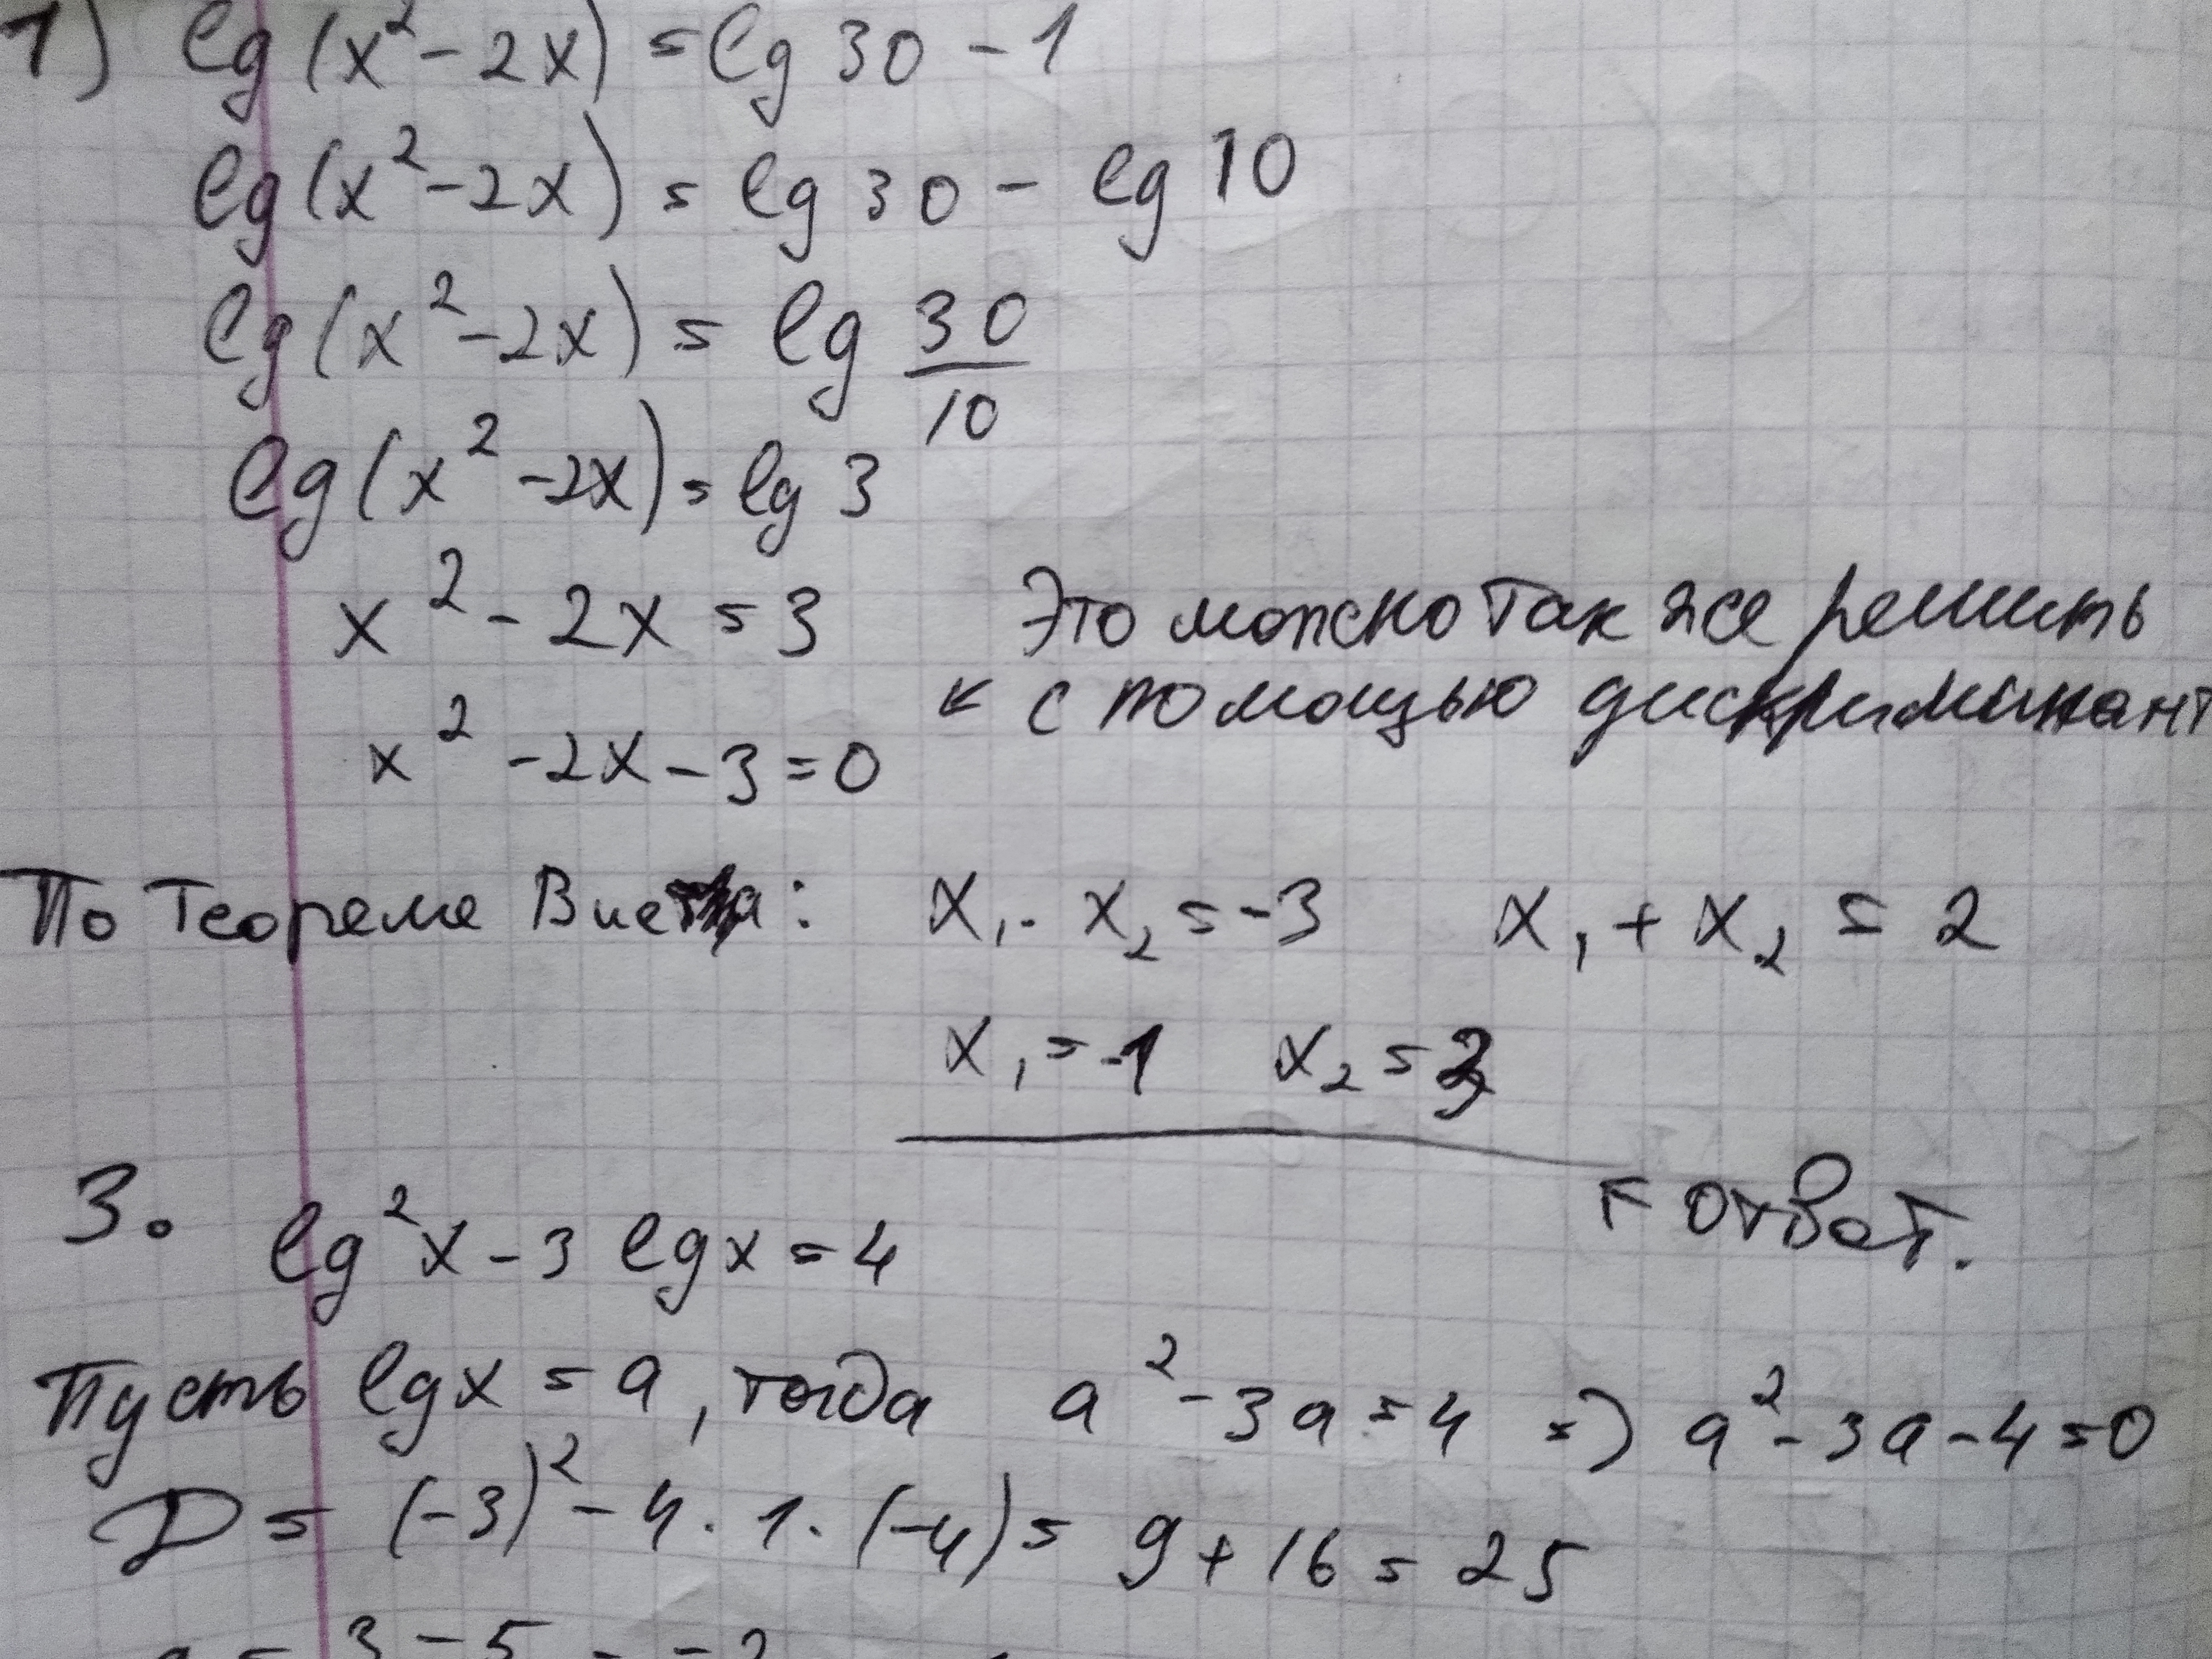 1) lg(x² - 2x) = lg 30 - 1
lg(x² - 2x) = lg 30 - lg 10
lg(x² - 2x) = lg 30/10
lg(x² - 2x) = lg 3
x² - 2x = 3
Это можно так же решить
x² - 2x - 3 = 0
← с помощью дискриминант
По теореме Виета: x₁ · x₂ = -3 x₁ + x₂ = 2
x₁ = -1 x₂ = 3
← ответ.
3. lg²x - 3 lgx = 4
Пусть lgx = a, тогда a² - 3a = 4 => a² - 3a - 4 = 0
D = (-3)² - 4 · 1 · (-4) = 9 + 16 = 25
3 - 5